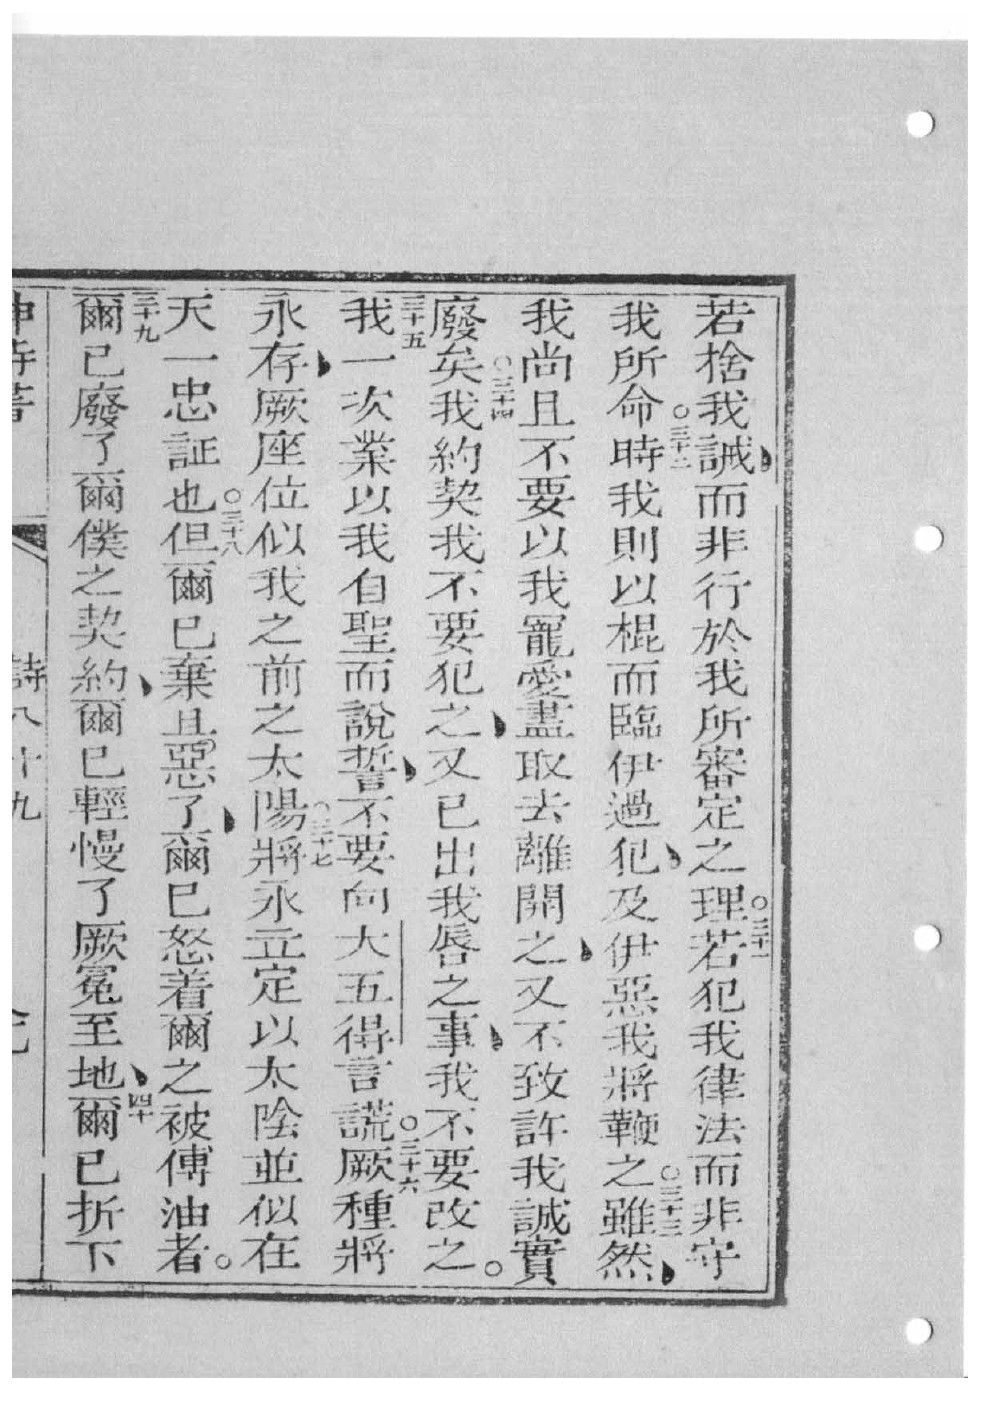 若捨我誡、而非行於我所審定之理。三十一若犯我律法而非守
我所命。三十二時我則以棍而臨伊過犯、及伊惡我將鞭之。三十三雖然、
我尚且不要以我寵愛盡取去離開之、又不致許我誠實
廢矣。三十四我約契我不要犯之、又已出我唇之事、我不要改之。
三十五我一次業以我自聖而說誓、不要向大五得言謊。三十六厥種將
永存、厥座位似我之前之太陽。三十七將永立定以太陰並似在
天一忠証也。三十八但爾已棄且惡了、爾已怒着爾之被傅油者。
三十九爾已廢了爾僕之契約、爾已輕慢了厥冕至地、四十爾已折下
詩八十九